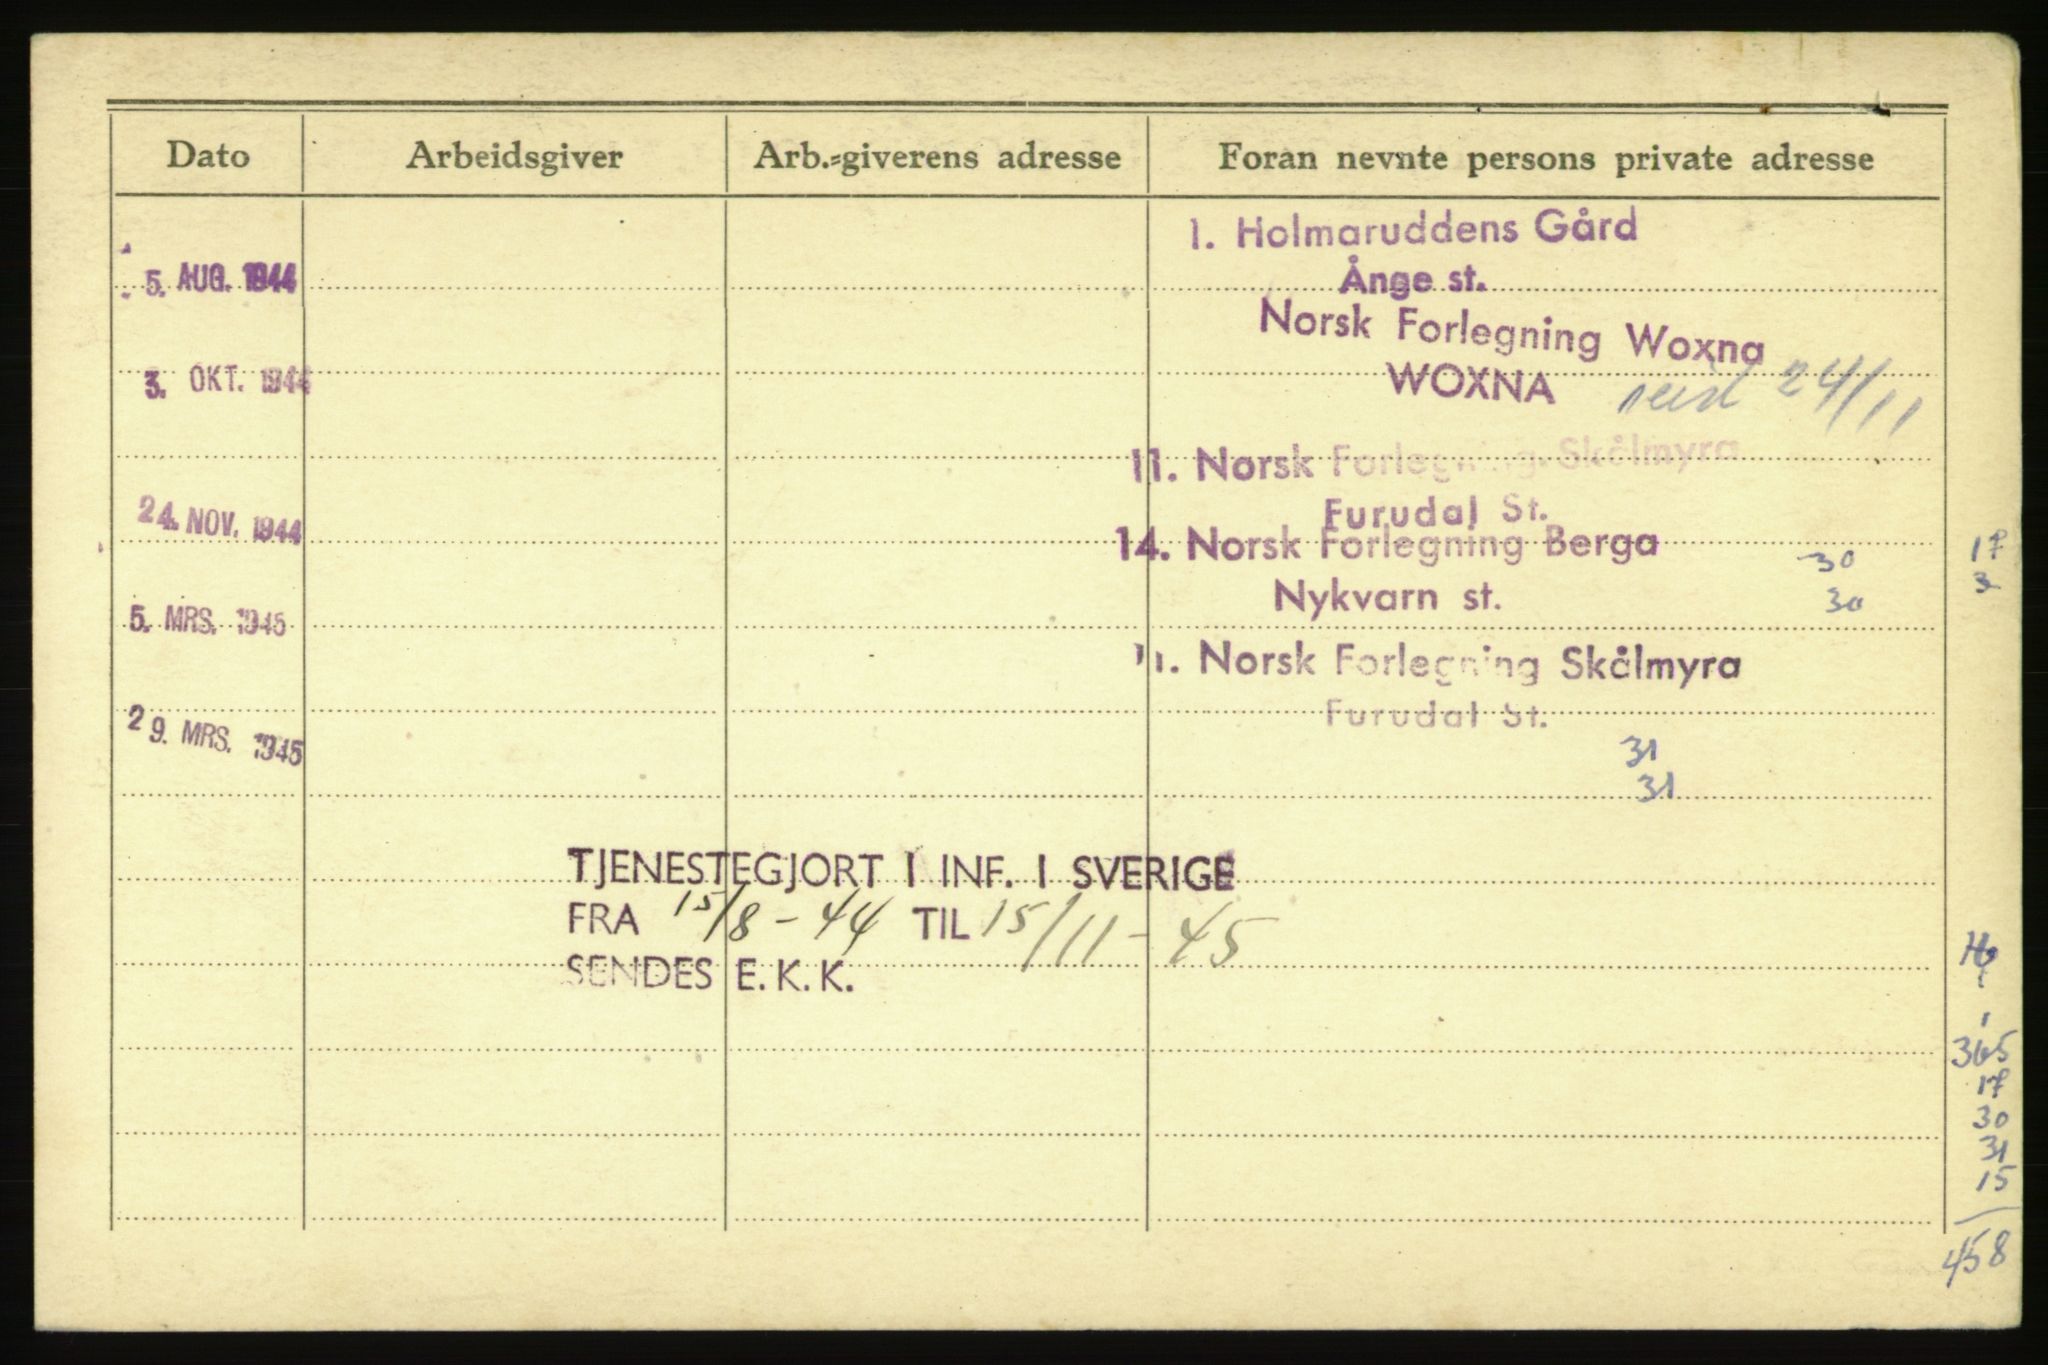 Dato Arbeidsgiver Arb.=giverens adresse Foran nevnte persons private adresse
1. Holmaruddens Gård
5. AUG. 1944 Ånge st.
Norsk Forlegning Woxna
3. OKT. 1944 WOXNA reist 24/11
11. Norsk Forlegning Skålmyra
Furudal St.
24. NOV. 1944 14. Norsk Forlegning Berga 30 17
Nykvarn st. 30 3
5. MRS. 1945
11. Norsk Forlegning Skålmyra
29. MRS. 1945 Furudal St.
31
31
TJENESTEGJORT I INF. I SVERIGE
FRA 15/8-44 TIL 15/11-45
SENDES E.K.K.
1
365
17
30
31
15
458